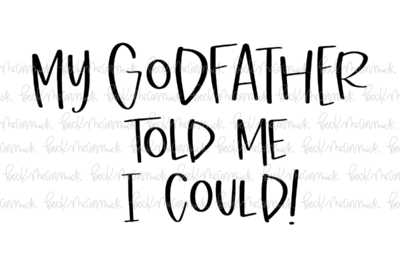 MY GODFATHER
TOLD ME
I COULD!